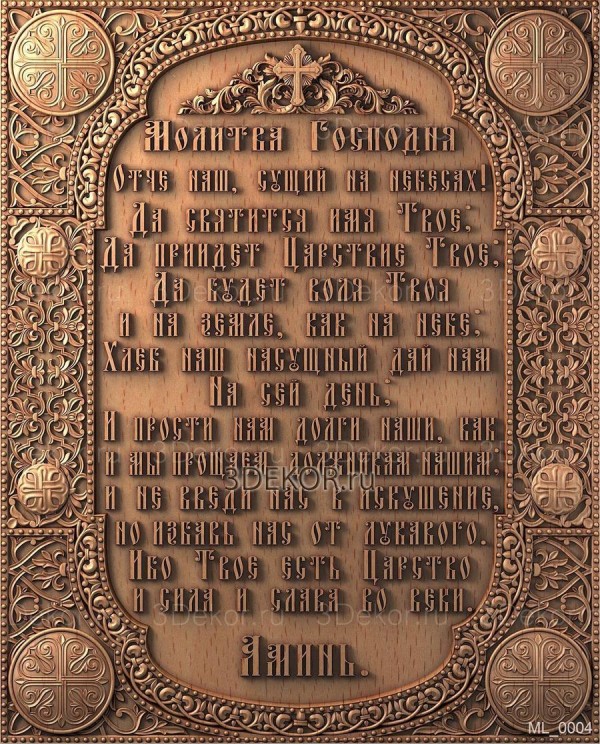 Молитва Господня
Отче наш, сущий на небесах!
Да святится имя Твое;
Да приидет Царствие Твое;
Да будет воля Твоя
и на земле, как на небе;
Хлеб наш насущный дай нам
На сей день;
И прости нам долги наши, как
и мы прощаем должникам нашим;
и не введи нас в искушение,
3DEKOR.ru
но избавь нас от лукавого.
Ибо Твое есть Царство
и сила и слава во веки.
Аминь.
ML_0004